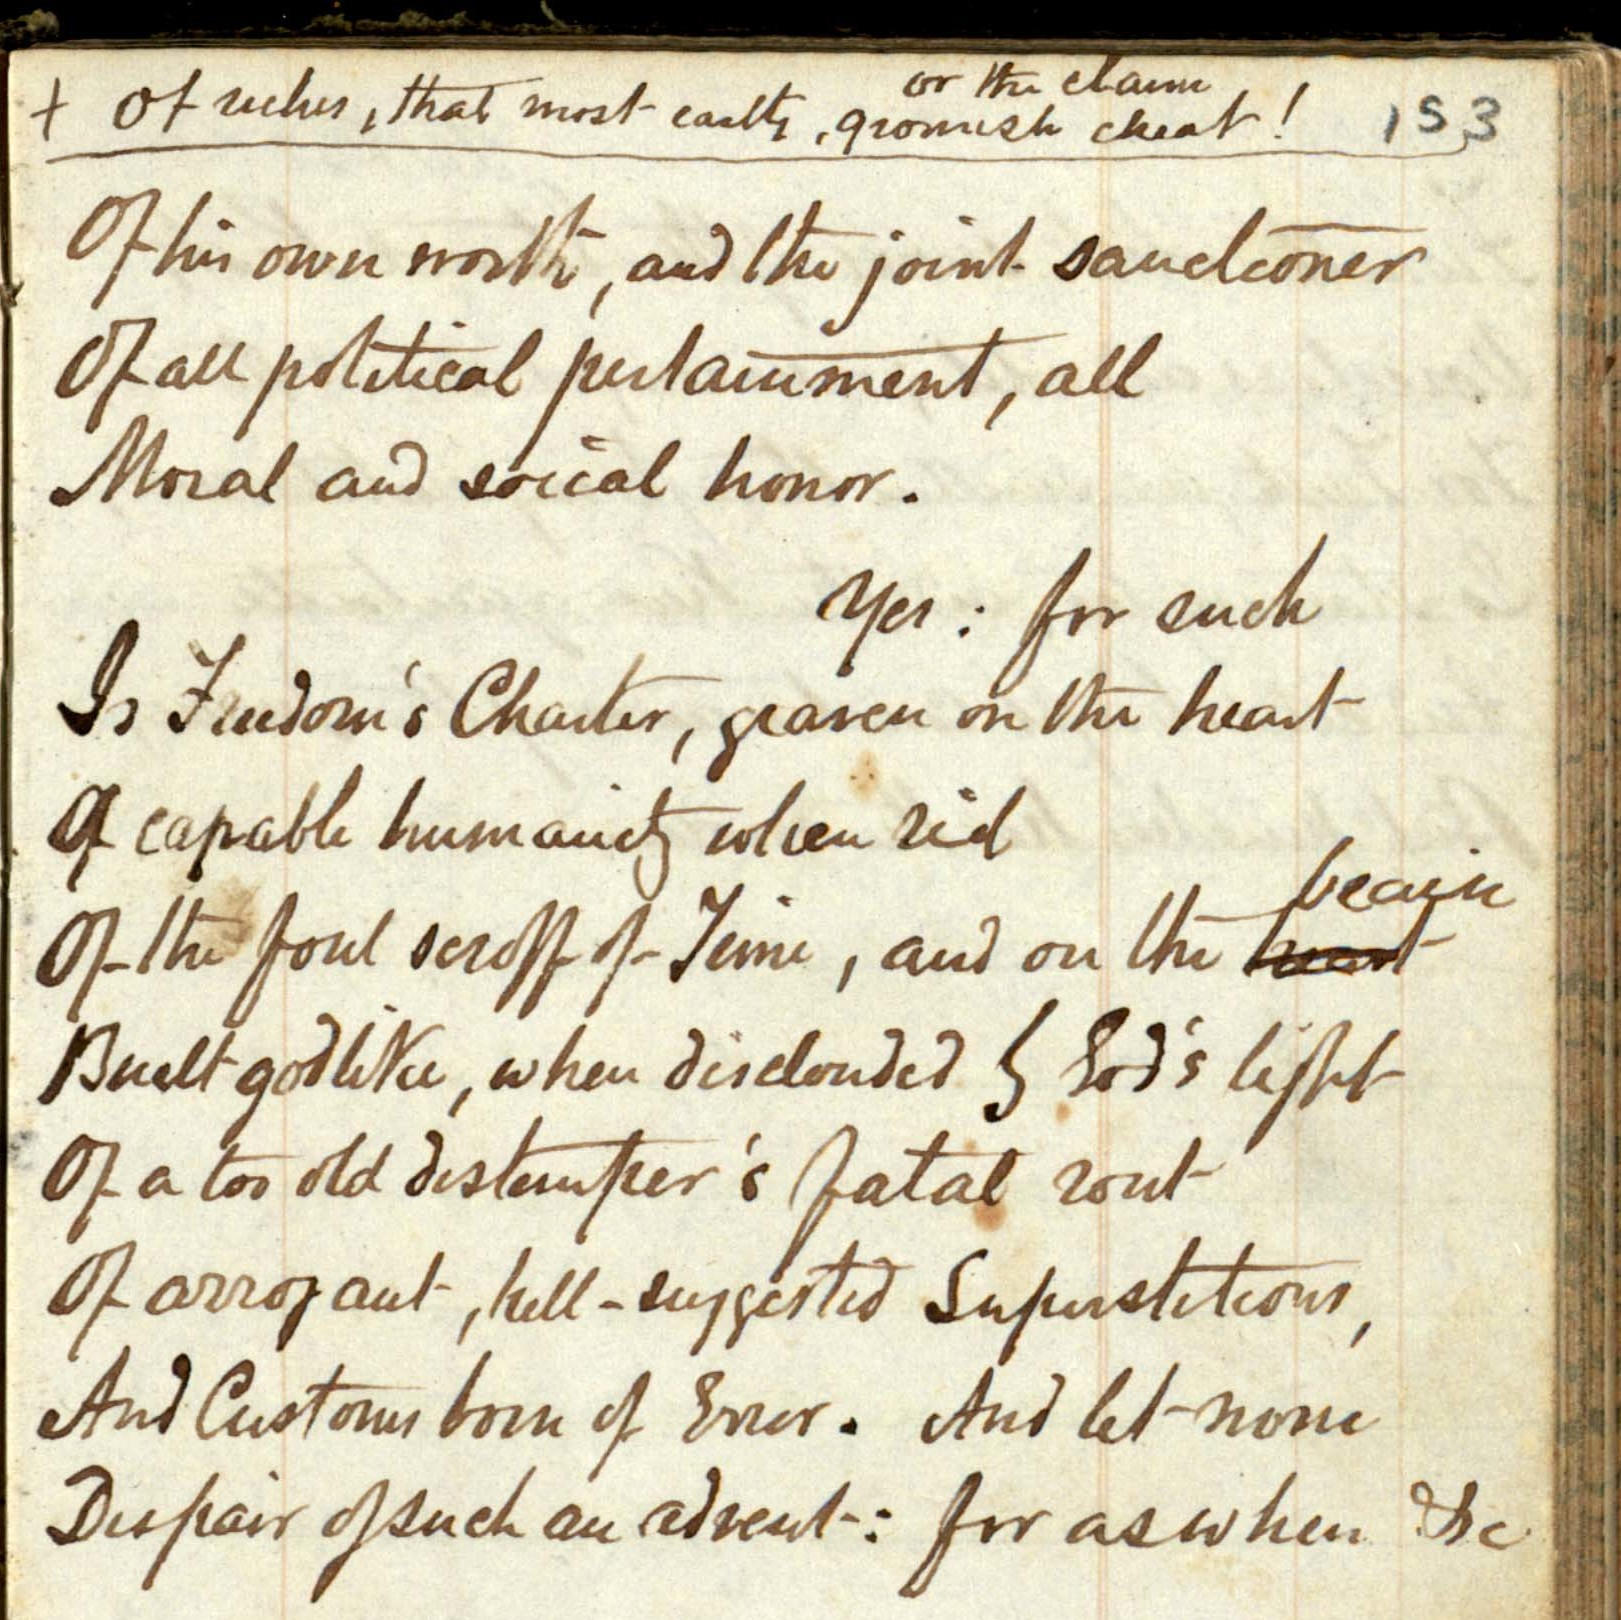 or the claim
+ Of riches, that most earthy, gnomish cheat! 153
Of his own worth, and the joint sanctioner
Of all political pertainment, all
Moral and social honor.
Yes: for such
Is Freedom's Charter, graven on the heart
Of capable humanity when rid
brain
Of the foul scroff of Time, and on the heart
Built godlike, when disclouded by God's light
Of a too old distemper's fatal rout
Of arrogant, hell-suggested Superstitions,
And Customs born of Error. And let none
Despair of such an advent: for as when &c